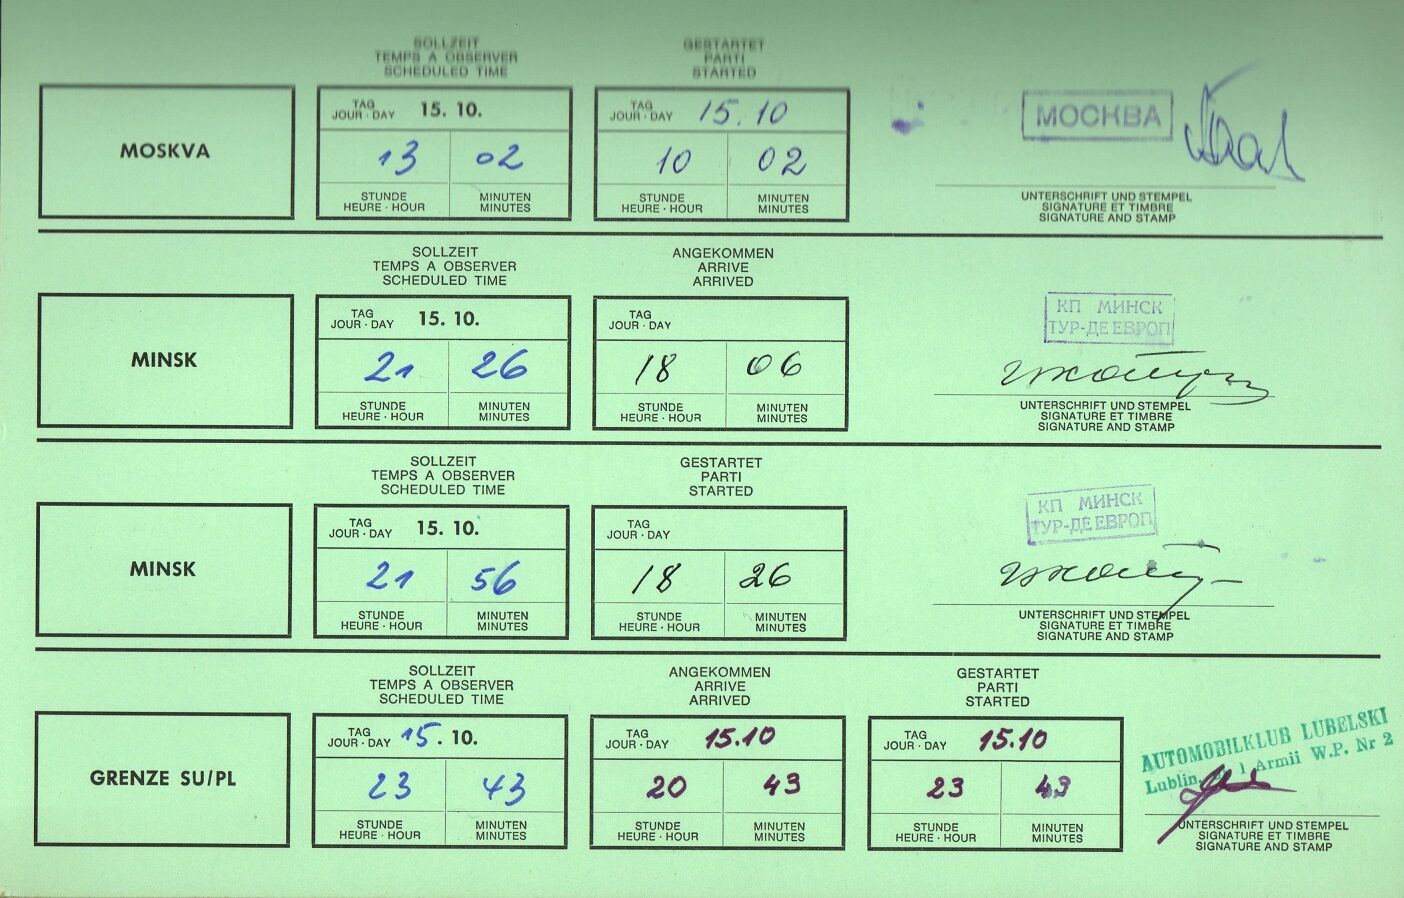 SOLLZEIT
TEMPS A OBSERVER
SCHEDULED TIME
GESTARTET
PARTI
STARTED
MOSKVA
TAG
JOUR · DAY 15. 10.
13 02
STUNDE MINUTEN
HEURE · HOUR MINUTES
TAG
JOUR · DAY 15.10
10 02
STUNDE MINUTEN
HEURE · HOUR MINUTES
МОСКВА
UNTERSCHRIFT UND STEMPEL
SIGNATURE ET TIMBRE
SIGNATURE AND STAMP
SOLLZEIT
TEMPS A OBSERVER
SCHEDULED TIME
ANGEKOMMEN
ARRIVE
ARRIVED
MINSK
TAG
JOUR · DAY 15. 10.
21 26
STUNDE MINUTEN
HEURE · HOUR MINUTES
TAG
JOUR · DAY
18 06
STUNDE MINUTEN
HEURE · HOUR MINUTES
КП МИНСК
ТУР-ДЕ ЕВРОП
UNTERSCHRIFT UND STEMPEL
SIGNATURE ET TIMBRE
SIGNATURE AND STAMP
SOLLZEIT
TEMPS A OBSERVER
SCHEDULED TIME
GESTARTET
PARTI
STARTED
MINSK
TAG
JOUR · DAY 15. 10.
21 56
STUNDE MINUTEN
HEURE · HOUR MINUTES
TAG
JOUR · DAY
18 26
STUNDE MINUTEN
HEURE · HOUR MINUTES
КП МИНСК
ТУР-ДЕ ЕВРОП
UNTERSCHRIFT UND STEMPEL
SIGNATURE ET TIMBRE
SIGNATURE AND STAMP
SOLLZEIT
TEMPS A OBSERVER
SCHEDULED TIME
ANGEKOMMEN
ARRIVE
ARRIVED
GESTARTET
PARTI
STARTED
GRENZE SU/PL
TAG
JOUR · DAY 15. 10.
23 43
STUNDE MINUTEN
HEURE · HOUR MINUTES
TAG
JOUR · DAY 15.10
20 43
STUNDE MINUTEN
HEURE · HOUR MINUTES
TAG
JOUR · DAY 15.10
23 43
STUNDE MINUTEN
HEURE · HOUR MINUTES
AUTOMOBILKLUB LUBELSKI
Lublin, 1 Armii W.P. Nr 2
UNTERSCHRIFT UND STEMPEL
SIGNATURE ET TIMBRE
SIGNATURE AND STAMP